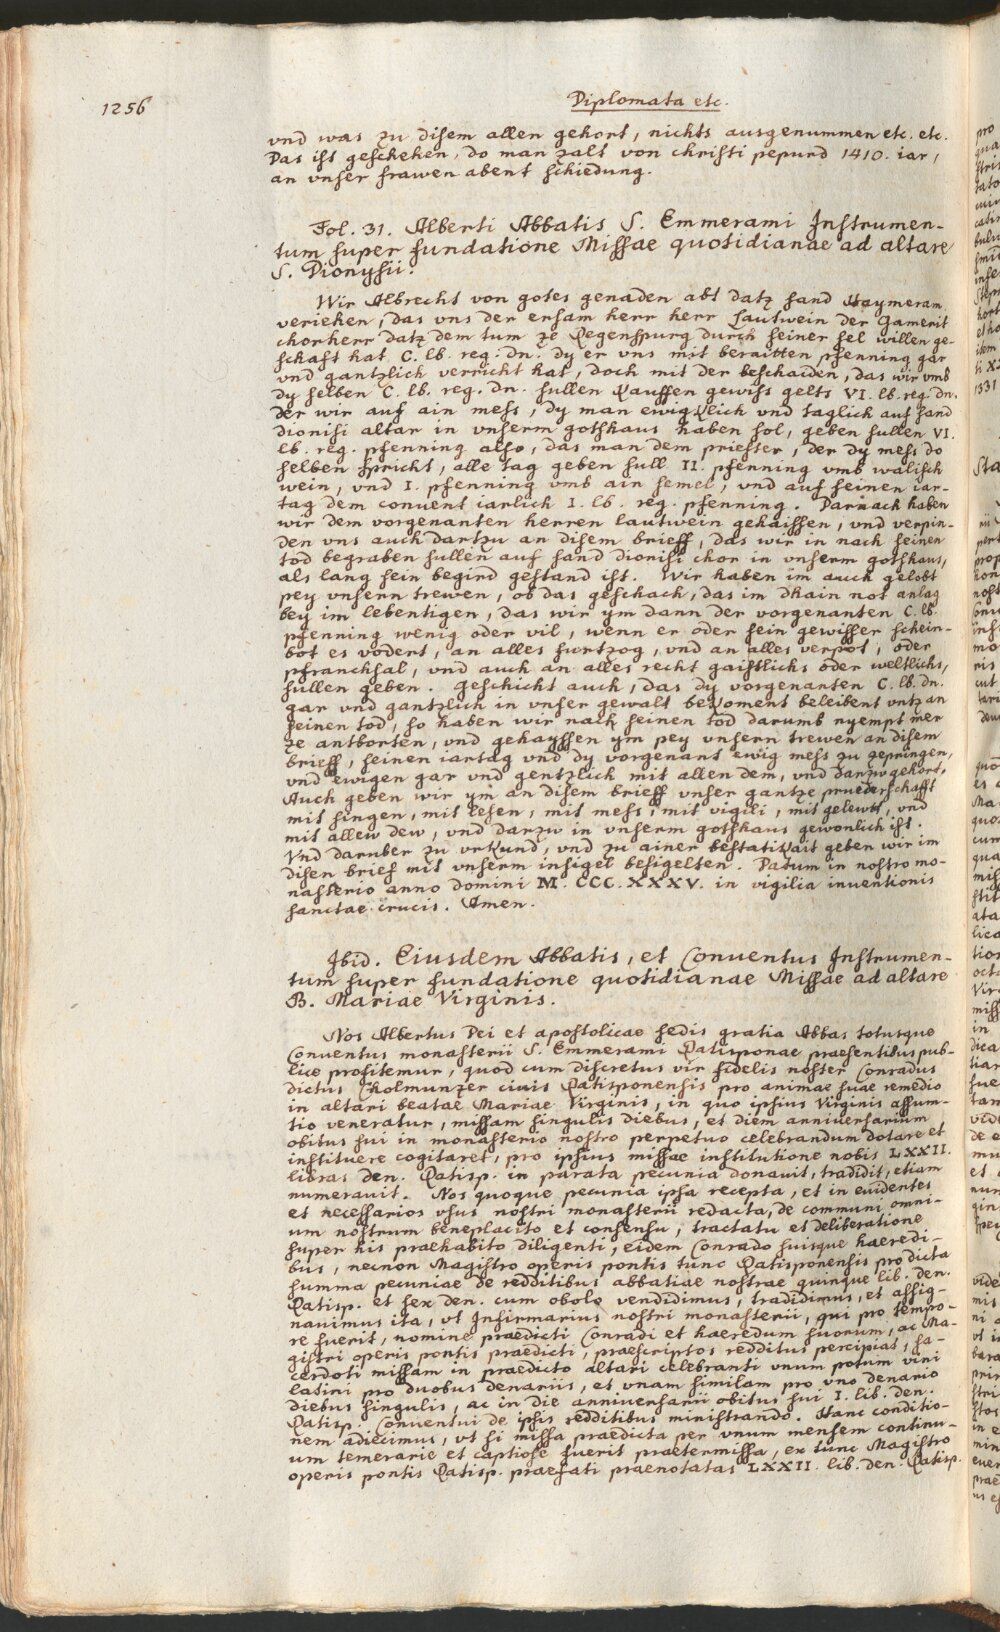 1256
Diplomata etc.
vnd was zu disem allen gehort, nichts ausgenummen etc. etc.
Das ist geschehen, do man zalt von christi pepurd 1410. iar,
an vnser frawen abent schiedung.
Fol. 31. Alberti Abbatis S. Emmerami Instrumen-
tum super fundatione Missae quotidianae ad altare
S. Dionysii.
Wir Albrecht von gotes genaden abt datz sand Haymeram
veriehen, das vns der ersam herr herr Lautwein der Gamerit
chorherr datz dem tum ze Regenspurg durch seiner sel willen ge-
schaft hat C. lb. reg. dn. dy er vns mit beraitten pfenning gar
vnd gantzlich verricht hat, doch mit der beschaiden, das wir vmb
dy selben C. lb. reg. dn. sullen kauffen gewiss gelts VI. lb. reg. dn.
der wir auf ain mess, dy man ewigklich vnd taglich auf sand
dionisi altar in vnserm gotshaus haben sol, geben sullen VI.
lb. reg. pfenning also, das man dem priester, der dy mess do
selben spricht, alle tag geben sull II. pfenning vmb walisch
wein, vnd I. pfenning vmb ain semel, vnd auf seinen iar-
tag dem conuent iarlich I. lb. reg. pfenning. Darnach haben
wir dem vorgenanten herren lautwein gehaissen, vnd verpin-
den vns auch dartzu an disem brieff, das wir in nach seinen
tod begraben sullen auf sand dionisi chor in vnserm gotshaus,
als lang sein begird gestand ist. Wir haben im auch gelobt
pey vnsern trewen, ob das geschach, das im dhain not anlag
bey im lebentigen, das wir ym dann der vorgenanten C. lb.
pfenning wenig oder vil, wenn er oder sein gewisser schein-
bot es vodert, an alles furtzog, vnd an alles verpot, oder
pfranchsal, vnd auch an alles recht gaistlichs oder weltlichs,
sullen geben. geschicht auch, das dy vorgenanten C. lb. dn.
gar vnd gantzlich in vnser gewalt bekoment beleibent vntz an
seinen tod, so haben wir nach seinen tod darumb nyempt mer
ze antborten, vnd gehayssen ym pey vnsern trewen an disem
brieff, seinen iartag vnd dy vorgenant ewig mess zu zepringen,
vnd ewigen gar vnd gentzlich mit allen dem, vnd darzu gehort.
Auch geben wir ym an disem brieff vnser gantze pruederschafft
mit singen, mit lesen, mit mess, mit vigili, mit gelewt, vnd
mit allew dew, vnd darzu in vnserm gotshaus gewonlich ist.
Vnd daruber zu vrkund, vnd zu ainer bestatikait geben wir im
disen brief mit vnserm insigel besigelten. Datum in nostro mo-
nasterio anno domini M. CCC. XXXV. in vigilia inuentionis
sanctae crucis. Amen.
Ibid. Eiusdem Abbatis, et Conuentus Instrumen-
tum super fundatione quotidianae Missae ad altare
B. Mariae Virginis.
Nos Albertus Dei et apostolicae sedis gratia Abbas totusque
Conuentus monasterii S. Emmerami Ratisponae praesentibus pub-
lice profitemur, quod cum discretus vir fidelis noster Conradus
dictus Cholmunzer ciuis Ratisponensis pro animae suae remedio
in altari beatae Mariae Virginis, in quo ipsius Virginis assum-
tio veneratur, missam singulis diebus, et diem anniuersarium
obitus sui in monasterio nostro perpetuo celebrandum dotare et
instituere cogitaret, pro ipsius missae institutione nobis LXXII.
libras den. Ratisp. in parata pecunia donauit, tradidit, etiam
numerauit. Nos quoque pecunia ipsa recepta, et in euidentes
et necessarios vsus nostri monasterii redacta, de communi omni-
um nostrum beneplacito et consensu, tractatu et deliberatione
super his praehabito diligenti, eidem Conrado suisque haeredi-
bus, necnon Magistro operis pontis tunc Ratisponensis pro dicta
summa pecuniae de redditibus abbatiae nostrae quinque lib. den.
Ratisp. et sex den. cum obolo vendidimus, tradidimus, et assig-
nauimus ita, vt Infirmarius nostri monasterii, qui pro tempo-
re fuerit, nomine praedicti Conradi et haeredum suorum, ac Ma-
gistri operis pontis praedicti, praescriptos redditus percipiat, sa-
cerdoti missam in praedicto altari celebranti vnum potum vini
latini pro duobus denariis, et vnam similam pro vno denario
diebus singulis, ac in die anniuersarii obitus sui I. lib. den.
Ratisp. Conuentui de ipsis redditibus ministrando. Hanc conditio-
nem adiecimus, vt si missa praedicta per vnum mensem continu-
um temerarie et captiose fuerit praetermissa, ex tunc Magistro
operis pontis Ratisp. praefati praenotatas LXXII. lib. den. Ratisp.